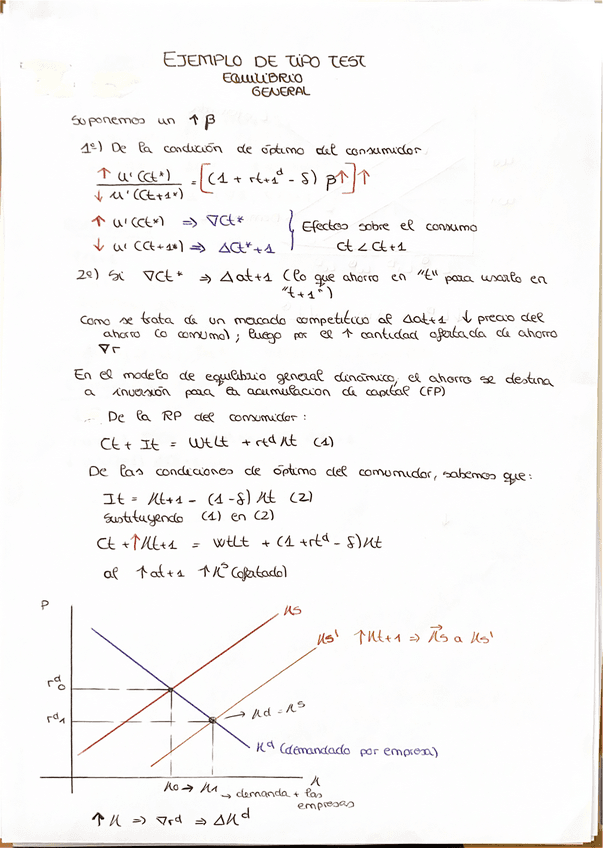 EJEMPLO DE TIPO TEST
EQUILIBRIO
GENERAL
Suponemos un ↑ β
1º) De la condición de óptimo del consumidor.
↑ u'(Ct*) / ↓ u'(Ct+1*) = [(1 + rt+1^d - δ) β↑]↑
↑ u'(Ct*) ⇒ ∇Ct*
↓ u'(Ct+1*) ⇒ ΔCt*+1
Efectos sobre el consumo
Ct < Ct+1
2º) Si ∇Ct* ⇒ Δat+1 (lo que ahorro en "t" para usarlo en
"t+1")
Como se trata de un mercado competitivo al Δat+1 ↓ precio del
ahorro (o consumo); luego por el ↑ cantidad ofertada de ahorro
∇r
En el modelo de equilibrio general dinámico, el ahorro se destina
a inversión para la acumulacion de capital (FP)
De la RP del consumidor:
Ct + It = WtLt + rt^d Kt (1)
De las condiciones de óptimo del consumidor, sabemos que:
It = Kt+1 - (1-δ) Kt (2)
sustituyendo (1) en (2)
Ct + ↑Kt+1 = WtLt + (1 + rt^d - δ)Kt
al ↑at+1 ↑K^s (ofertado)
P
Ks
Ks' ↑Kt+1 ⇒ Ks a Ks'
r^d0
r^d1
→ Kd = K^s
K^d (demandado por empresa)
K0 → K1
K
→ demanda + las
empresas
↑ K ⇒ ∇rd ⇒ ΔK^d